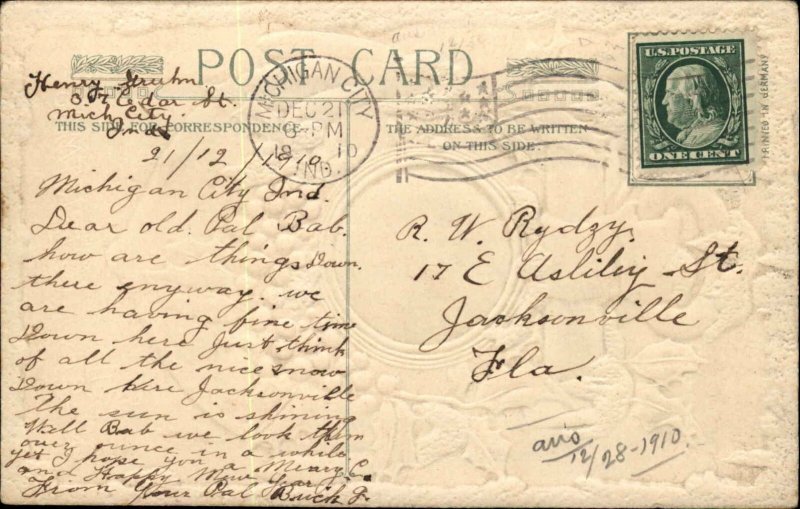 POST CARD
Henry
Cedar St.
Mich City
Ind
THIS SIDE FOR CORRESPONDENCE
THE ADDRESS TO BE WRITTEN
ON THIS SIDE.
MICHIGAN CITY
DEC 21
8-PM
1910
IND.
U.S. POSTAGE
ONE CENT
PRINTED IN GERMANY
21/12/1910
Michigan City Ind.
Dear old Pal Bab.
how are things Down
there enyway. we
are having fine time
Down here Just think
of all the nice snow
Down here Jacksonville
The sun is shining
Well Bab we look them
over ounce in a while
yet I hope you a Merry C.
and Happy New Year
From Your Pal Buck F.
R. W. Rydzy
17 E Ashley St.
Jacksonville
Fla.
ans
12/28-1910.